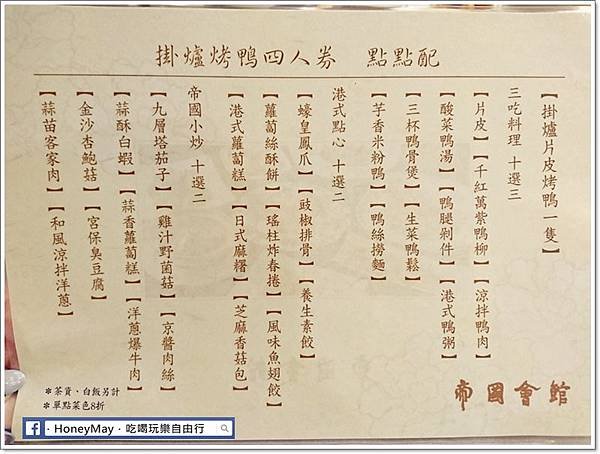 掛爐烤鴨四人券　點點配
【掛爐片皮烤鴨一隻】
三吃料理　十選三
【片皮】【千紅萬紫鴨柳】【涼拌鴨肉】
【酸菜鴨湯】【鴨腿剁件】【港式鴨粥】
【三杯鴨骨煲】【生菜鴨鬆】
【芋香米粉鴨】【鴨絲撈麵】
港式點心　十選二
【蠔皇鳳爪】【豉椒排骨】【養生素餃】
【蘿蔔絲酥餅】【瑤柱炸春捲】【風味魚翅餃】
【港式蘿蔔糕】【日式麻糬】【芝麻香菇包】
帝國小炒　十選二
【九層塔茄子】【雞汁野菌菇】【京醬肉絲】
【蒜酥白蝦】【蒜香蘿蔔糕】【洋蔥爆牛肉】
【金沙杏鮑菇】【宮保臭豆腐】
【蒜苗客家肉】【和風涼拌洋蔥】
＊茶資、白飯另計
＊單點菜色8折
帝國會館
f · HoneyMay · 吃喝玩樂自由行